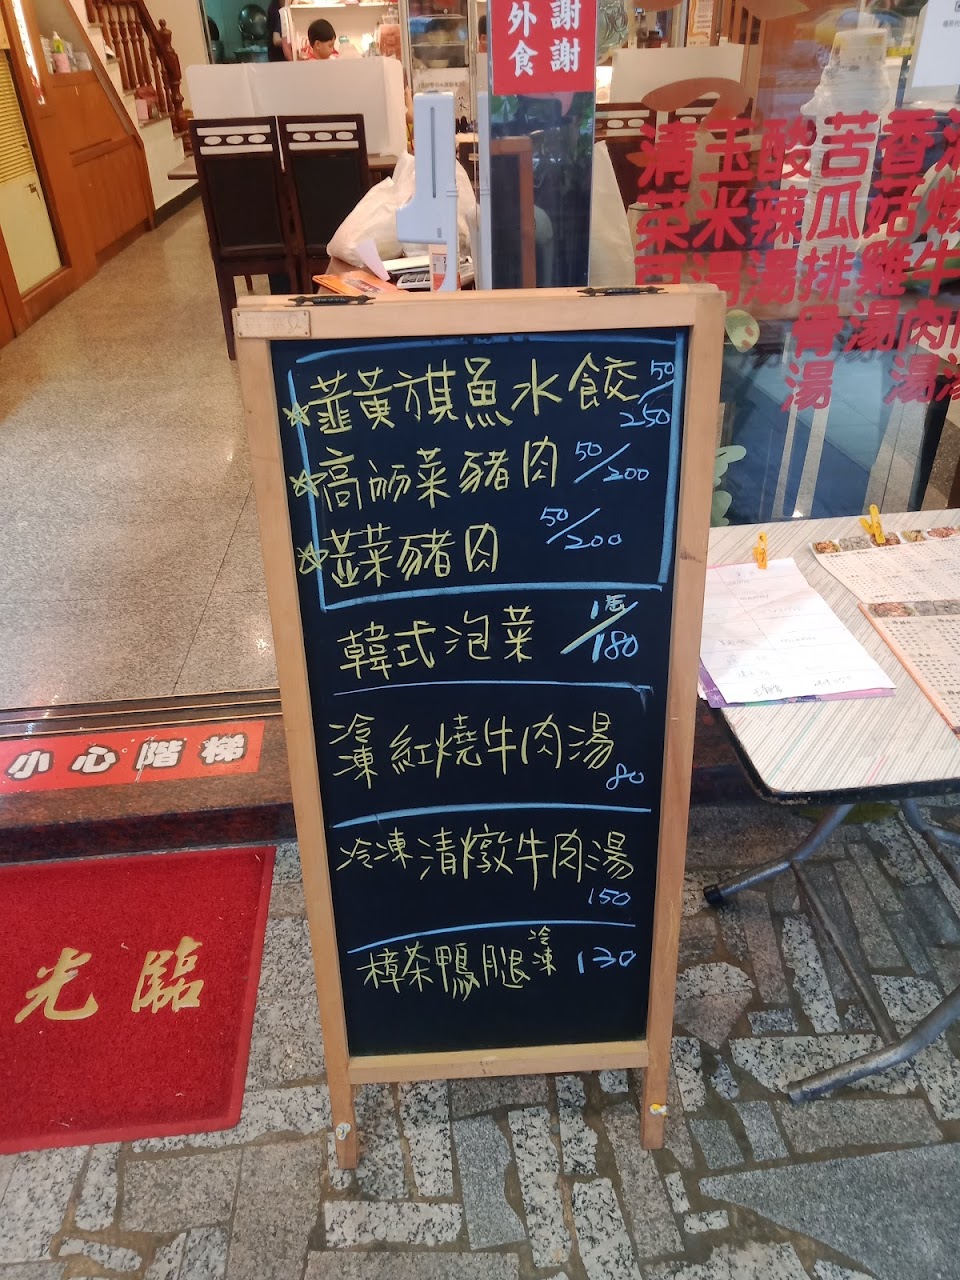 謝謝
外食
清 玉 酸 苦 香
菜 米 辣 瓜 菇 燉
湯 湯 排 雞 牛
骨 湯 肉
湯 湯
☆韮黃旗魚水餃 50/250
☆高麗菜豬肉 50/200
☆韮菜豬肉 50/200
韓式泡菜 1/180
冷凍紅燒牛肉湯 80
冷凍清燉牛肉湯
150
樟茶鴨腿冷凍 130
小心階梯
光臨